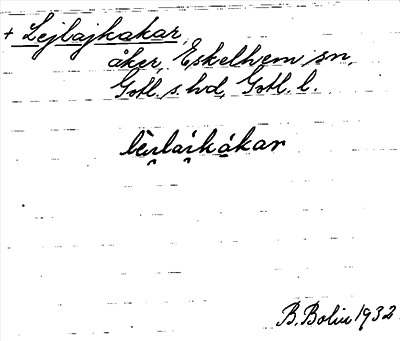 + Lejlajkakar,
åker, Eskelhem sn,
Gotl. s. hd, Gotl. l.
B. Bolin 1932